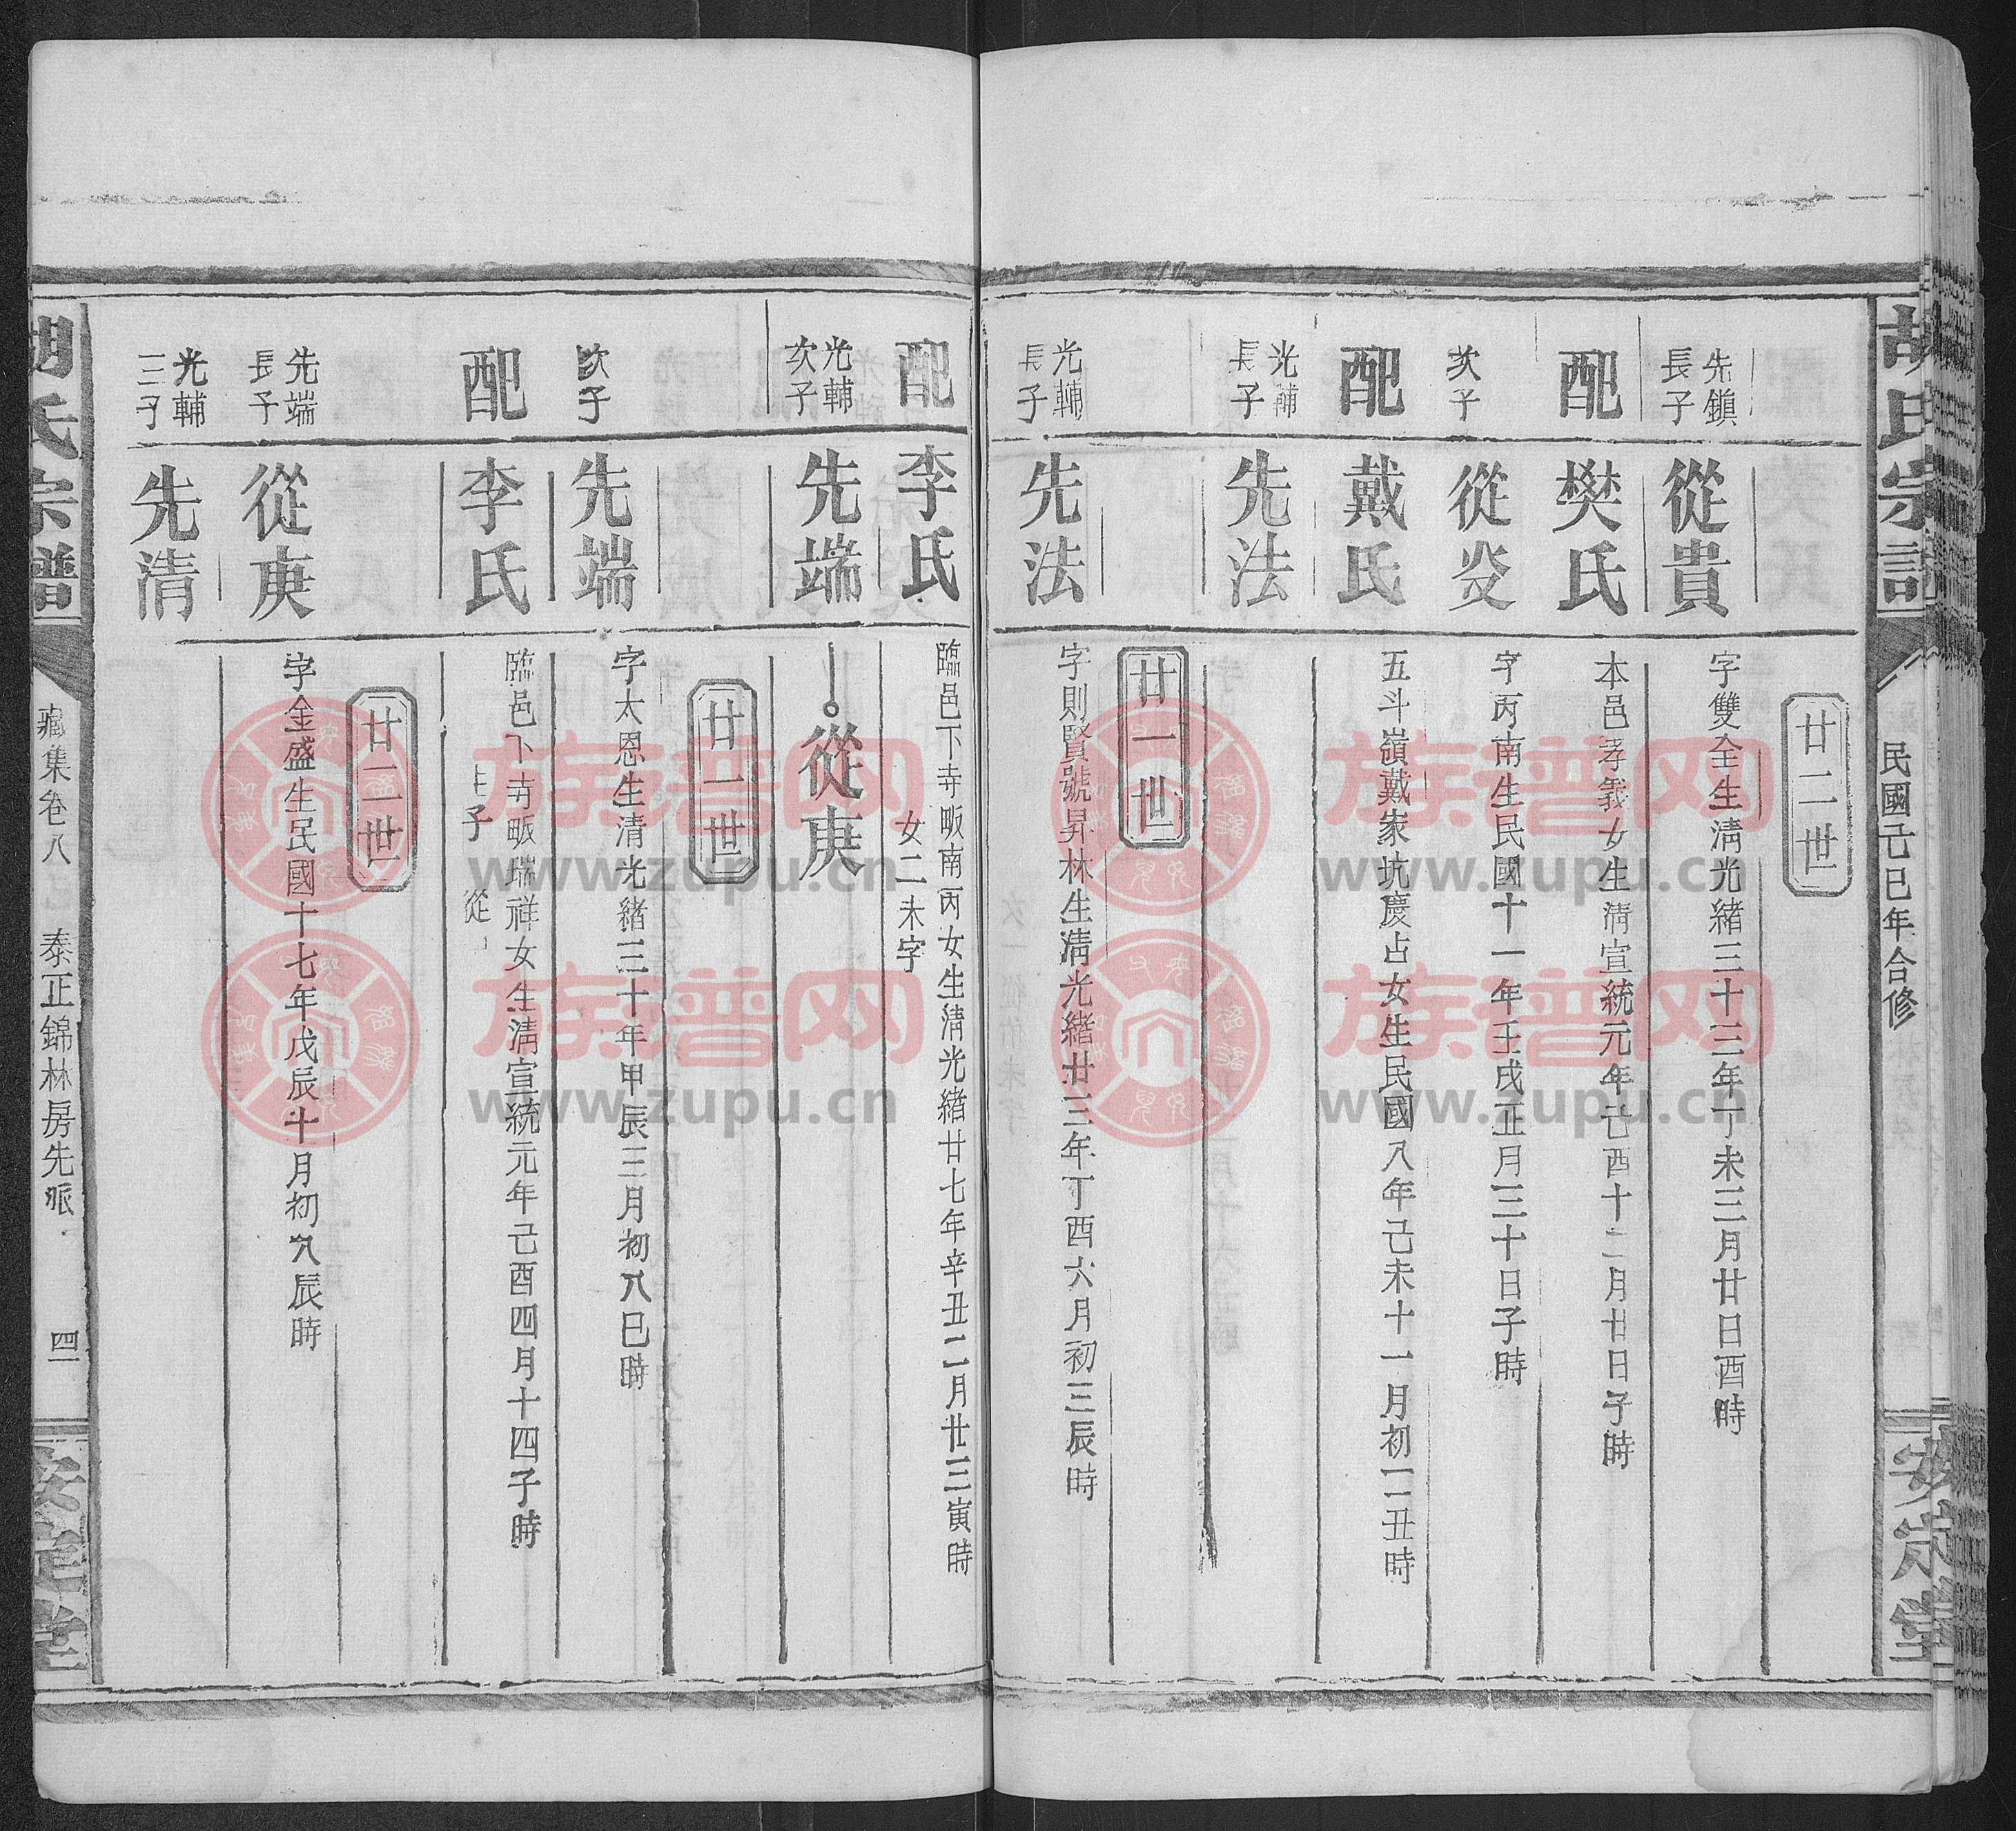 胡氏宗譜
民國己巳年合修
安定堂
廿二世
先鎭長子
從貴
字雙全生清光緒三十三年丁未三月廿日酉時
配
樊氏
本邑孝義女生清宣統元年己酉十二月廿日子時
次子
從炎
字丙南生民國十一年壬戌正月三十日子時
配
戴氏
五斗嶺戴家坑慶占女生民國八年己未十一月初二丑時
光輔長子
先法
廿一世
光輔長子
先法
字則賢號昇林生清光緒廿三年丁酉六月初三辰時
配
李氏
臨邑下寺畈南丙女生清光緒廿七年辛丑二月廿三寅時
女二未字
光輔次子
先端
從庚
廿一世
次子
先端
字太恩生清光緒三十年甲辰三月初八巳時
配
李氏
臨邑下寺畈瑞祥女生清宣統元年己酉四月十四子時
子 從
廿二世
先端長子
從庚
字金盛生民國十七年戊辰十月初八辰時
光輔三子
先清
胡氏宗譜
藏集卷八 泰正錦林房先派
四
安定堂
族譜网
www.zupu.cn
族譜网
www.zupu.cn
族譜网
www.zupu.cn
族譜网
www.zupu.cn